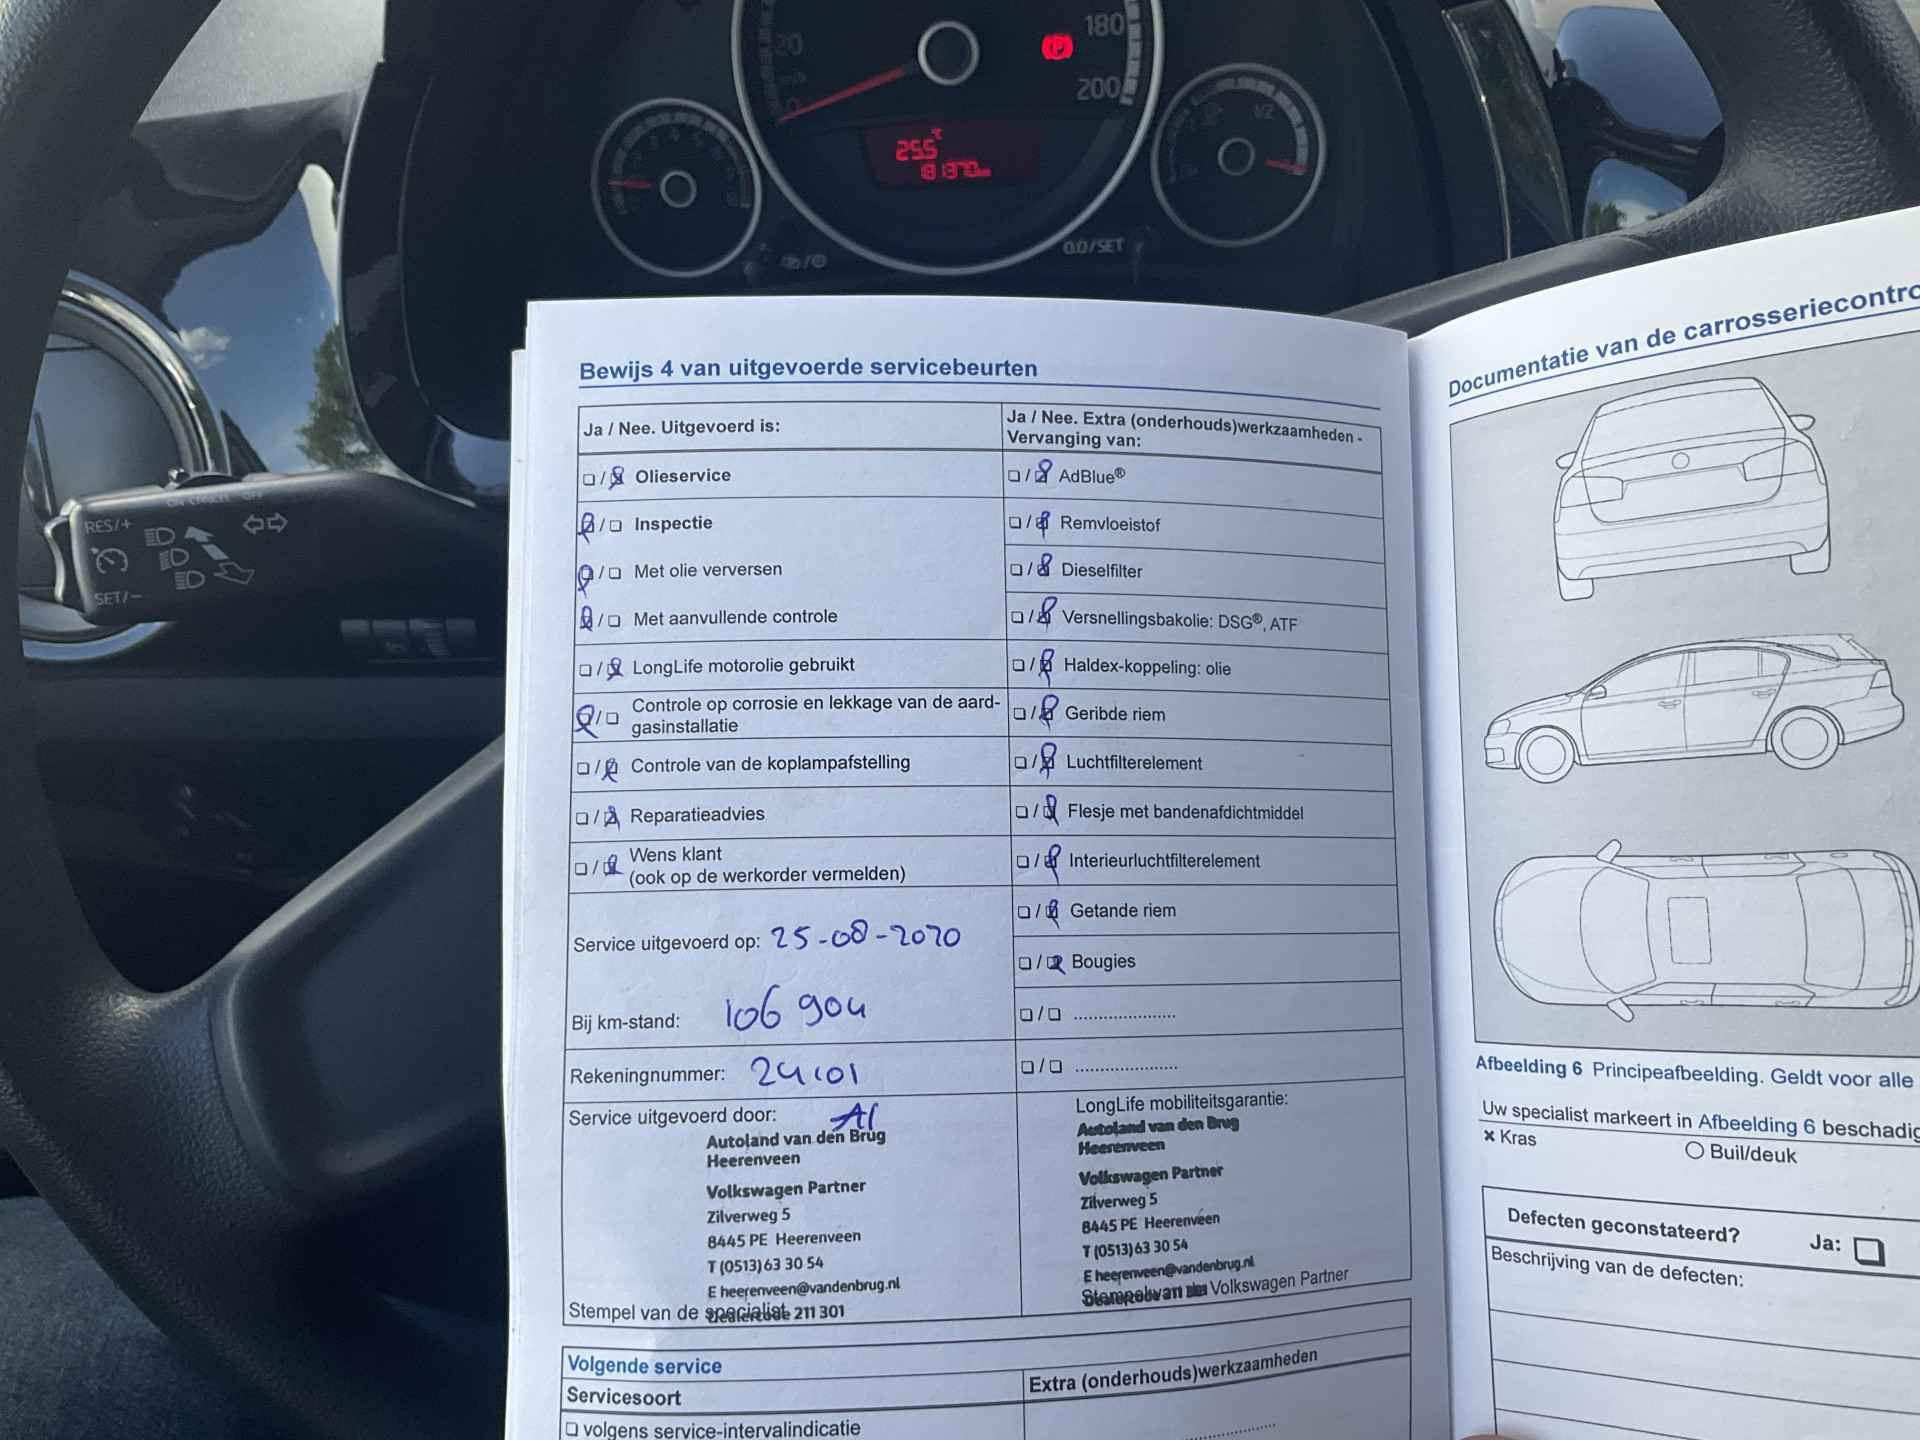 20
0
180
200
P
1/2
25.5 °C
181370 km
0.0/SET
RES/+
SET/−
ON CANCEL OFF
Bewijs 4 van uitgevoerde servicebeurten
Ja / Nee. Uitgevoerd is:
Ja / Nee. Extra (onderhouds)werkzaamheden -
Vervanging van:
❑ / ❑ Olieservice
❑ / ❑ AdBlue®
❑ / ❑ Inspectie
❑ / ❑ Remvloeistof
❑ / ❑ Met olie verversen
❑ / ❑ Dieselfilter
❑ / ❑ Met aanvullende controle
❑ / ❑ Versnellingsbakolie: DSG®, ATF
❑ / ❑ LongLife motorolie gebruikt
❑ / ❑ Haldex-koppeling: olie
❑ / ❑ Controle op corrosie en lekkage van de aard-
gasinstallatie
❑ / ❑ Geribde riem
❑ / ❑ Controle van de koplampafstelling
❑ / ❑ Luchtfilterelement
❑ / ❑ Reparatieadvies
❑ / ❑ Flesje met bandenafdichtmiddel
❑ / ❑ Wens klant
(ook op de werkorder vermelden)
❑ / ❑ Interieurluchtfilterelement
❑ / ❑ Getande riem
Service uitgevoerd op: 25-08-2020
❑ / ❑ Bougies
Bij km-stand: 106 904
❑ / ❑ .....................
Rekeningnummer: 24101
❑ / ❑ .....................
Service uitgevoerd door:
Autoland van den Brug
Heerenveen
Volkswagen Partner
Zilverweg 5
8445 PE Heerenveen
T (0513) 63 30 54
E heerenveen@vandenbrug.nl
Stempel van de specialist
Dealercode 211 301
LongLife mobiliteitsgarantie:
Autoland van den Brug
Heerenveen
Volkswagen Partner
Zilverweg 5
8445 PE Heerenveen
T (0513) 63 30 54
E heerenveen@vandenbrug.nl
Stempel van Volkswagen Partner
Volgende service
Servicesoort
Extra (onderhouds)werkzaamheden
❑ volgens service-intervalindicatie
.....................
Documentatie van de carrosseriecontro
Afbeelding 6 Principeafbeelding. Geldt voor alle
Uw specialist markeert in Afbeelding 6 beschadig
× Kras
○ Buil/deuk
Defecten geconstateerd?
Ja: ❑
Beschrijving van de defecten: